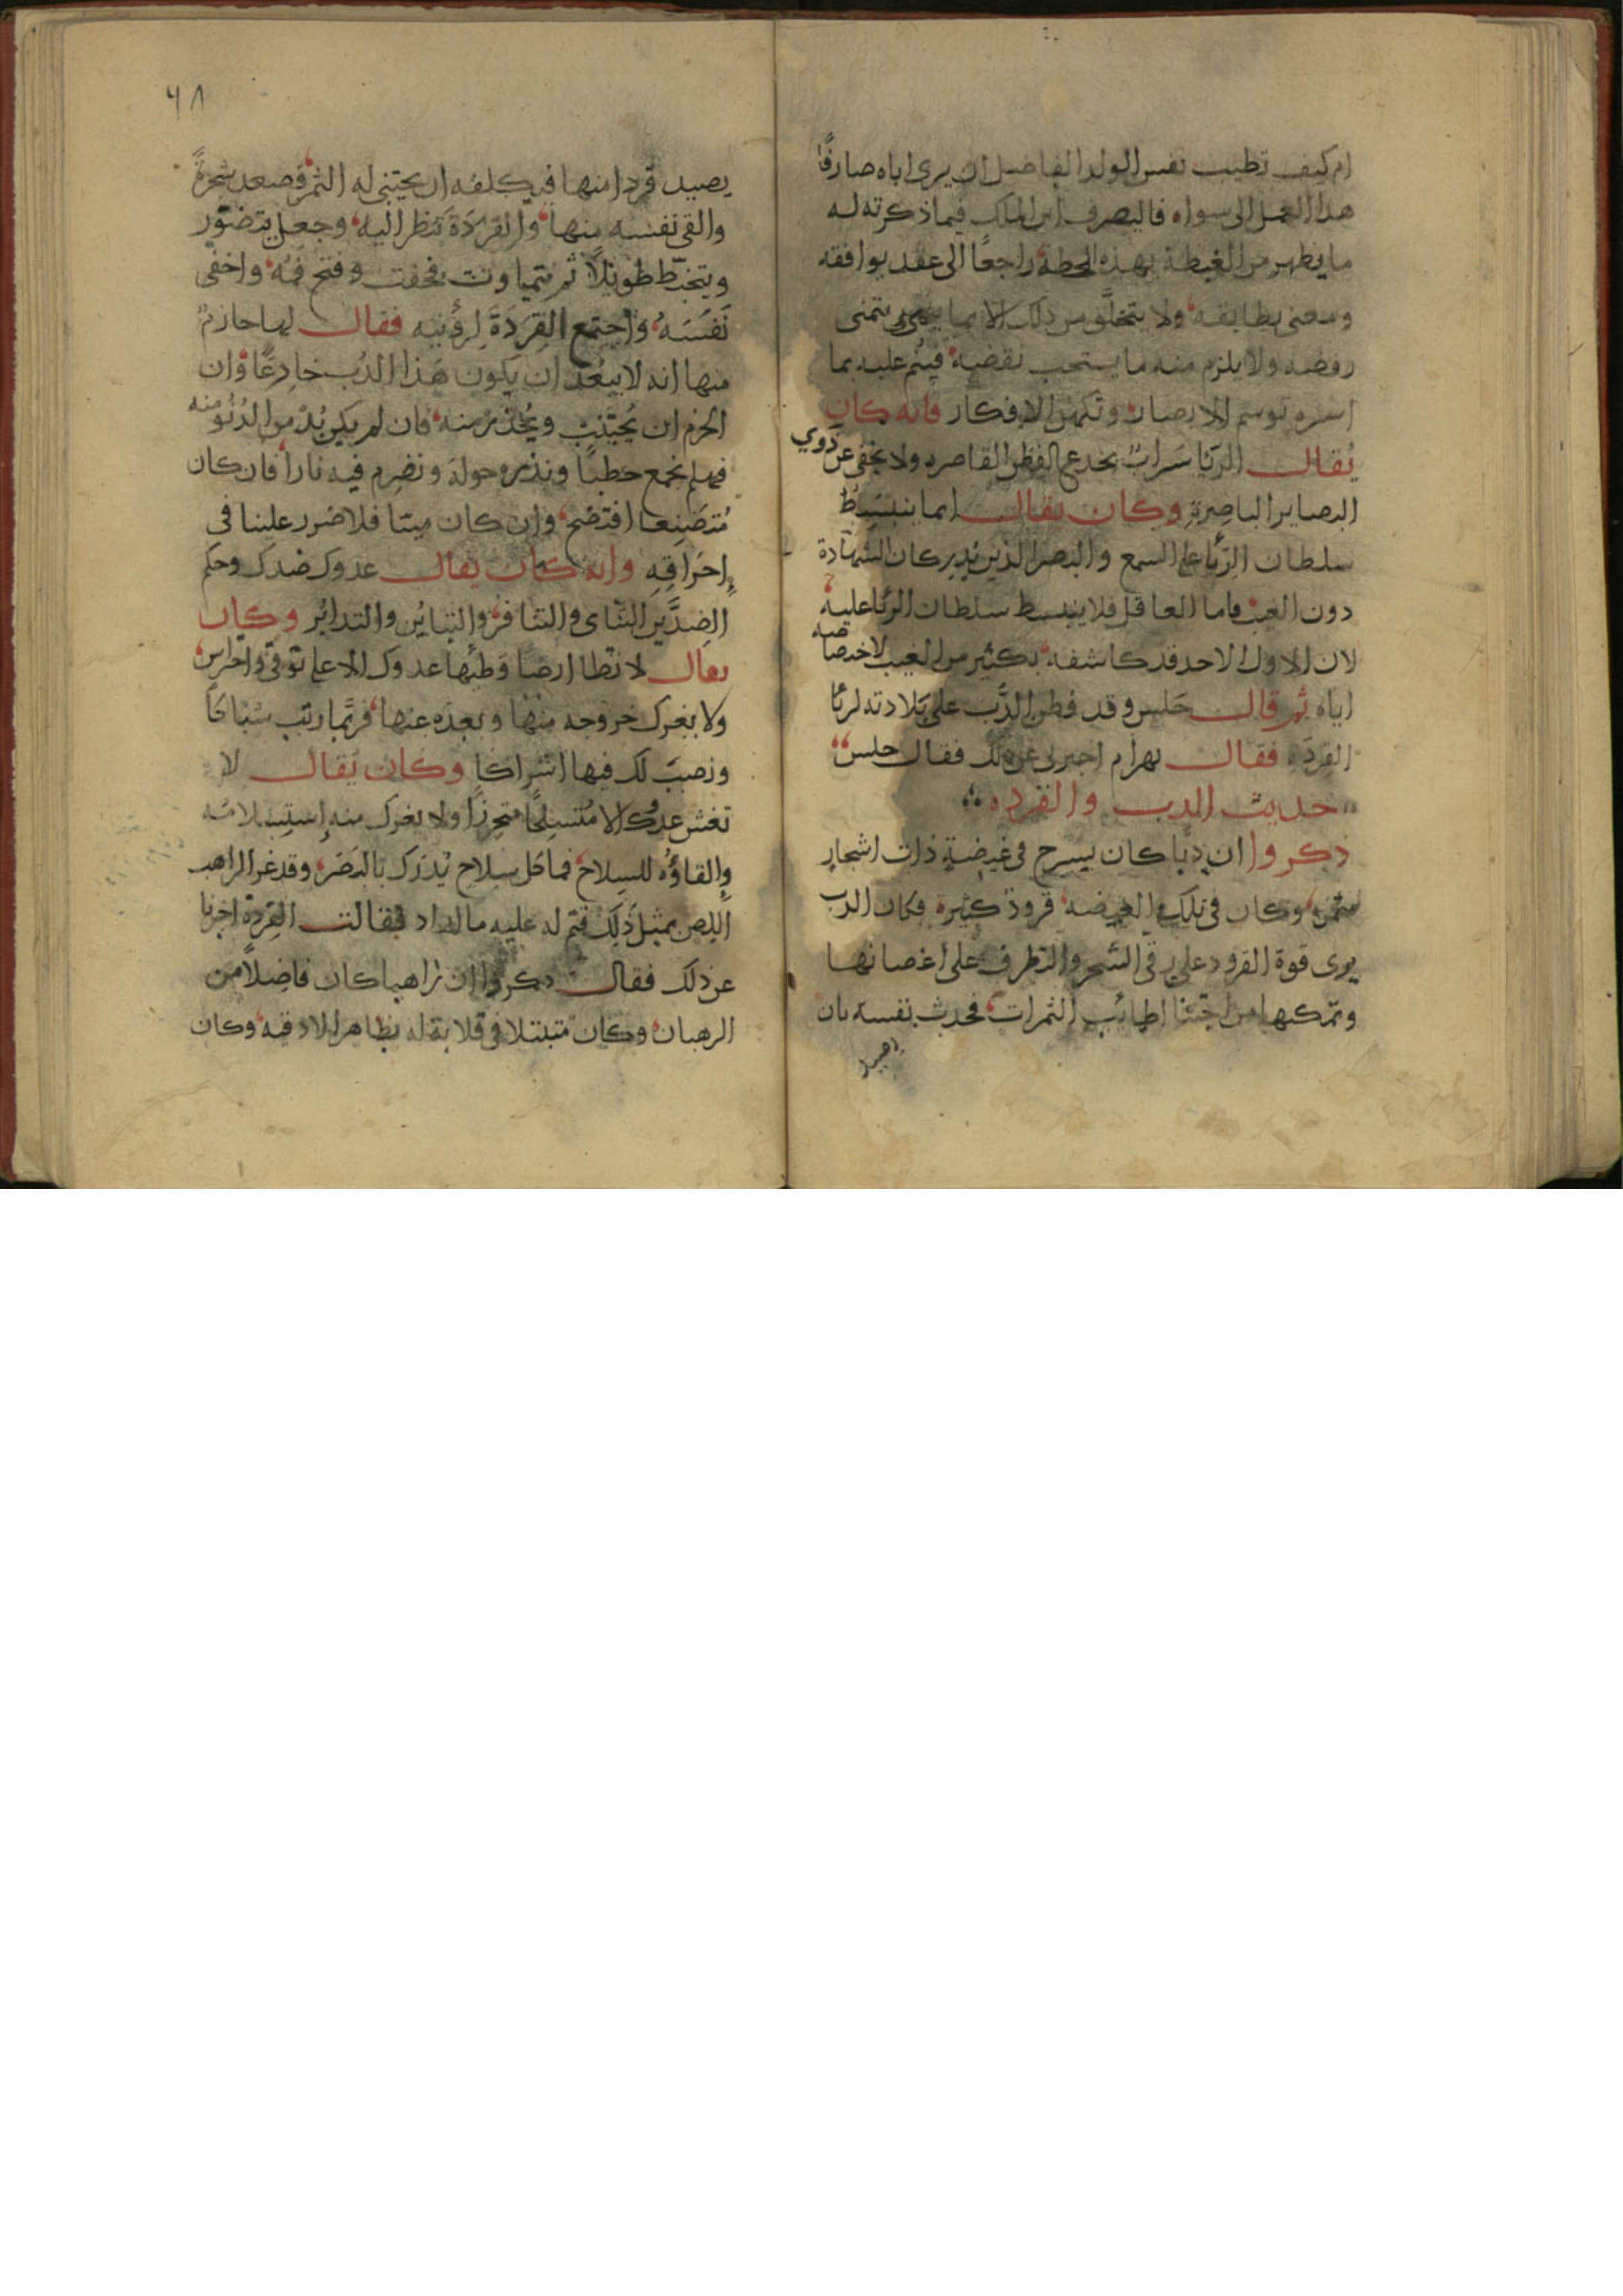 ام كيف تطيب نفس الولد الفاضل ان يرى اباه صارفًا
هذا العمل الى سواه فاليصرف ابن الملك فيما ذكرته له
ما يظهر من الغبطة بهذه الخطة راجعًا الى عقد يوافقه
ومعنى يطابقه ولا يتخلّق من ذلك الا بما يتمنى
رفضه ولا يلزم منه ما يستحب نقضه فينم عليه بما
اسره توسم الابصار وتكهن الافكار فانه كان
يُقال الريا سَراب يخدع الفطر القاصره ولا يخفى عن ذوي
البصاير الباصِرةِ وكان يقال انما ينبسِطُ
سلطان الرّيا على السمع والبصر الذين يُدركان الشهادة
دون الغيب فاما العاقل فلا ينبسط سلطان الريا عليه
لان الاول الاحد قد كاشفه بكثير من الغيب لاختصاصه
اياه ثم قال حَلس وقد فطن الدُّب على بَلادته لريا
القِرَدَه فقال بهرام اخبرني عن ذلك فقال حلس
حديث الدب والقرده
ذكروا ان دبا كان يسرح في غيضةٍ ذات اشجارٍ
مثمره وكان في تلك الغيضه قرودٌ كثيرة فكان الدب
يرى قوة القرود على رقي الشجر والتطرف على اغصانها
وتمكنها من اجتنا اطائب الثمرات فحدث نفسه بان
يصيد
٦٨
يصيد قردا منها فيكلفه ان يجتنى له الثمر فصعد شجرةً
والقى نفسه منها والقردَة تنظر اليه وجعل يتضوّر
ويتخبّط طويلًا ثم تماوت فخفت وفتح فمه واخفى
نَفَسَهُ واجتمع القِرَدَةَ لِرؤيتِه فقال لها حازمٌ
منها انه لا يبعُد ان يكون هَذا الدُب خادعًا وان
الحزم ان يُجتنب ويُحذر منه فان لم يكن بُدّ من الدُنُو منه
فهلم نجمع حطبًا ونذره حوله ونضرم فيه نارا فان كان
مُتصَنِعا افتضح وان كان ميتا فلا ضرر علينا في
إحرَاقِهِ وانه كان يقال عدوك ضدك وحكم
الضِدَّين التنَاى والتنافُر والتبايُن والتدابُر وكان
يقال لا تطا ارضا وَطِئَها عدوك الا على توقي واحتراس
ولا يغرك خروجه منها وبعده عنها فربّما رتب شباكًا
ونصبَ لك فيها اشراكا وكان يُقال لا
تغش عدوك الا مُتسلحًا متحرزًا ولا يغرك منه إستِسلامُه
والقاؤُه للسِلاح فما كل سِلاح يُدْرَك بالبَصَر وقد غر الراهب
اللِص بمثل ذَلك فتم له عليه ما اراد فقالت القِردة اخبرنا
عن ذلك فقال ذكروا ان راهبا كان فاضِلاً من
الرهبان وكان متبتلا في قلاية له بظاهر الادقيه وكان